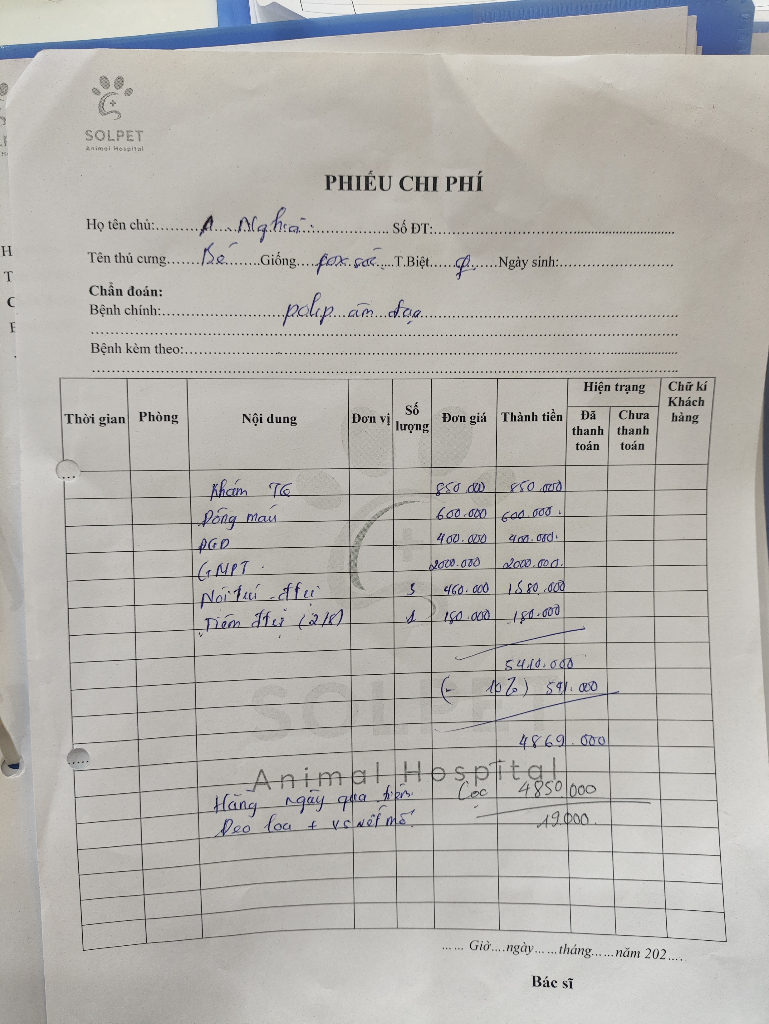 SOLPET
Animal Hospital
PHIẾU CHI PHÍ
Họ tên chủ: A. Nghĩa Số ĐT:
Tên thú cưng Bé Giống fox sóc T.Biệt ♀ Ngày sinh:
Chẩn đoán:
Bệnh chính: polip âm đạo
Bệnh kèm theo:
Thời gian Phòng Nội dung Đơn vị Số lượng Đơn giá Thành tiền Hiện trạng Đã thanh toán Chưa thanh toán Chữ kí Khách hàng
Khám TQ 850.000 850.000
Đông máu 600.000 600.000.
PGD 400.000 400.000.
GMPT. 2000.000 2000.000.
Nội trú đtrị 3 460.000 1380.000
Tiêm đtrị (2/8) 1 180.000 180.000
5410.000
(- 10%) 541.000
4869.000
SOLPET
Animal Hospital
Hằng ngày qua tiêm. Cọc 4850000
Đeo loa + vs vết mổ. 19.000.
Giờ ngày tháng năm 202
Bác sĩ